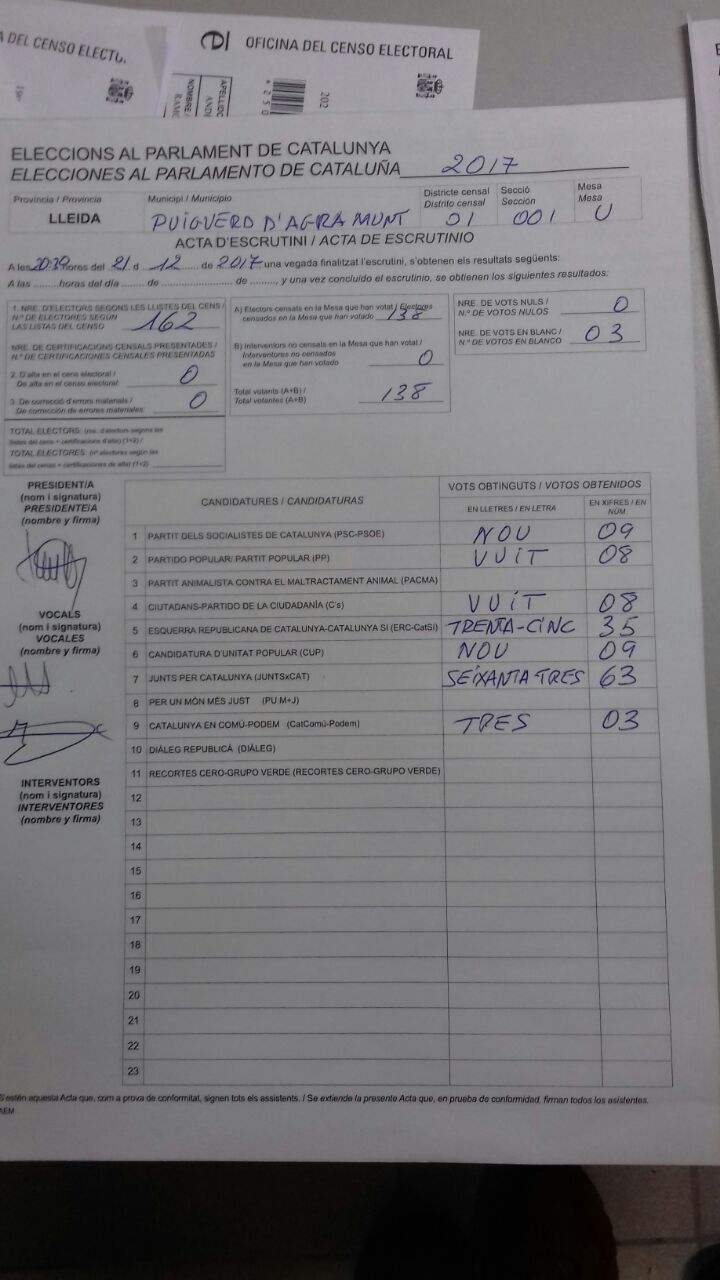 A DEL CENSO ELECTU.
OFICINA DEL CENSO ELECTORAL
NOMBRE/
APELLIDO
202
ELECCIONS AL PARLAMENT DE CATALUNYA
ELECCIONES AL PARLAMENTO DE CATALUÑA 2017
Província / Provincia
LLEIDA
Municipi / Municipio
PUIGVERD D'AGRAMUNT
Districte censal
Distrito censal
01
Secció
Sección
001
Mesa
Mesa
U
ACTA D'ESCRUTINI / ACTA DE ESCRUTINIO
A les 20:39 hores del 21 d 12 de 2017 una vegada finalitzat l'escrutini, s'obtenen els resultats següents:
A las ........horas del día ........ de .................. de ........, y una vez concluido el escrutinio, se obtienen los siguientes resultados:
1. NRE. D'ELECTORS SEGONS LES LLISTES DEL CENS /
N.º DE ELECTORES SEGÚN
LAS LISTAS DEL CENSO 162
NRE. DE CERTIFICACIONS CENSALS PRESENTADES /
N.º DE CERTIFICACIONES CENSALES PRESENTADAS
2. D'alta en el cens electoral /
De alta en el censo electoral: 0
3. De correcció d'errors materials /
De corrección de errores materiales: 0
TOTAL ELECTORS: (nre. d'electors segons les
llistes del cens + certificacions d'alta) (1+2) /
TOTAL ELECTORES: (nº electores según las
listas del censo + certificaciones de alta) (1+2)
A) Electors censats en la Mesa que han votat / Electores
censados en la Mesa que han votado 138
B) Interventors no censats en la Mesa que han votat /
Interventores no censados
en la Mesa que han votado 0
Total votants (A+B) /
Total votantes (A+B) 138
NRE. DE VOTS NULS /
N.º DE VOTOS NULOS 0
NRE. DE VOTS EN BLANC /
N.º DE VOTOS EN BLANCO 03
PRESIDENT/A
(nom i signatura)
PRESIDENTE/A
(nombre y firma)
VOCALS
(nom i signatura)
VOCALES
(nombre y firma)
INTERVENTORS
(nom i signatura)
INTERVENTORES
(nombre y firma)
CANDIDATURES / CANDIDATURAS
VOTS OBTINGUTS / VOTOS OBTENIDOS
EN LLETRES / EN LETRA
EN XIFRES / EN NÚM.
1 PARTIT DELS SOCIALISTES DE CATALUNYA (PSC-PSOE) NOU 09
2 PARTIDO POPULAR/ PARTIT POPULAR (PP) VUIT 08
3 PARTIT ANIMALISTA CONTRA EL MALTRACTAMENT ANIMAL (PACMA)
4 CIUTADANS-PARTIDO DE LA CIUDADANÍA (C's) VUIT 08
5 ESQUERRA REPUBLICANA DE CATALUNYA-CATALUNYA SÍ (ERC-CatSí) TRENTA-CINC 35
6 CANDIDATURA D'UNITAT POPULAR (CUP) NOU 09
7 JUNTS PER CATALUNYA (JUNTSxCAT) SEIXANTA TRES 63
8 PER UN MÓN MÉS JUST (PU M+J)
9 CATALUNYA EN COMÚ-PODEM (CatComú-Podem) TRES 03
10 DIÀLEG REPUBLICÀ (DIÀLEG)
11 RECORTES CERO-GRUPO VERDE (RECORTES CERO-GRUPO VERDE)
12
13
14
15
16
17
18
19
20
21
22
23
S'estén aquesta Acta que, com a prova de conformitat, signen tots els assistents. / Se extiende la presente Acta que, en prueba de conformidad, firman todos los asistentes.